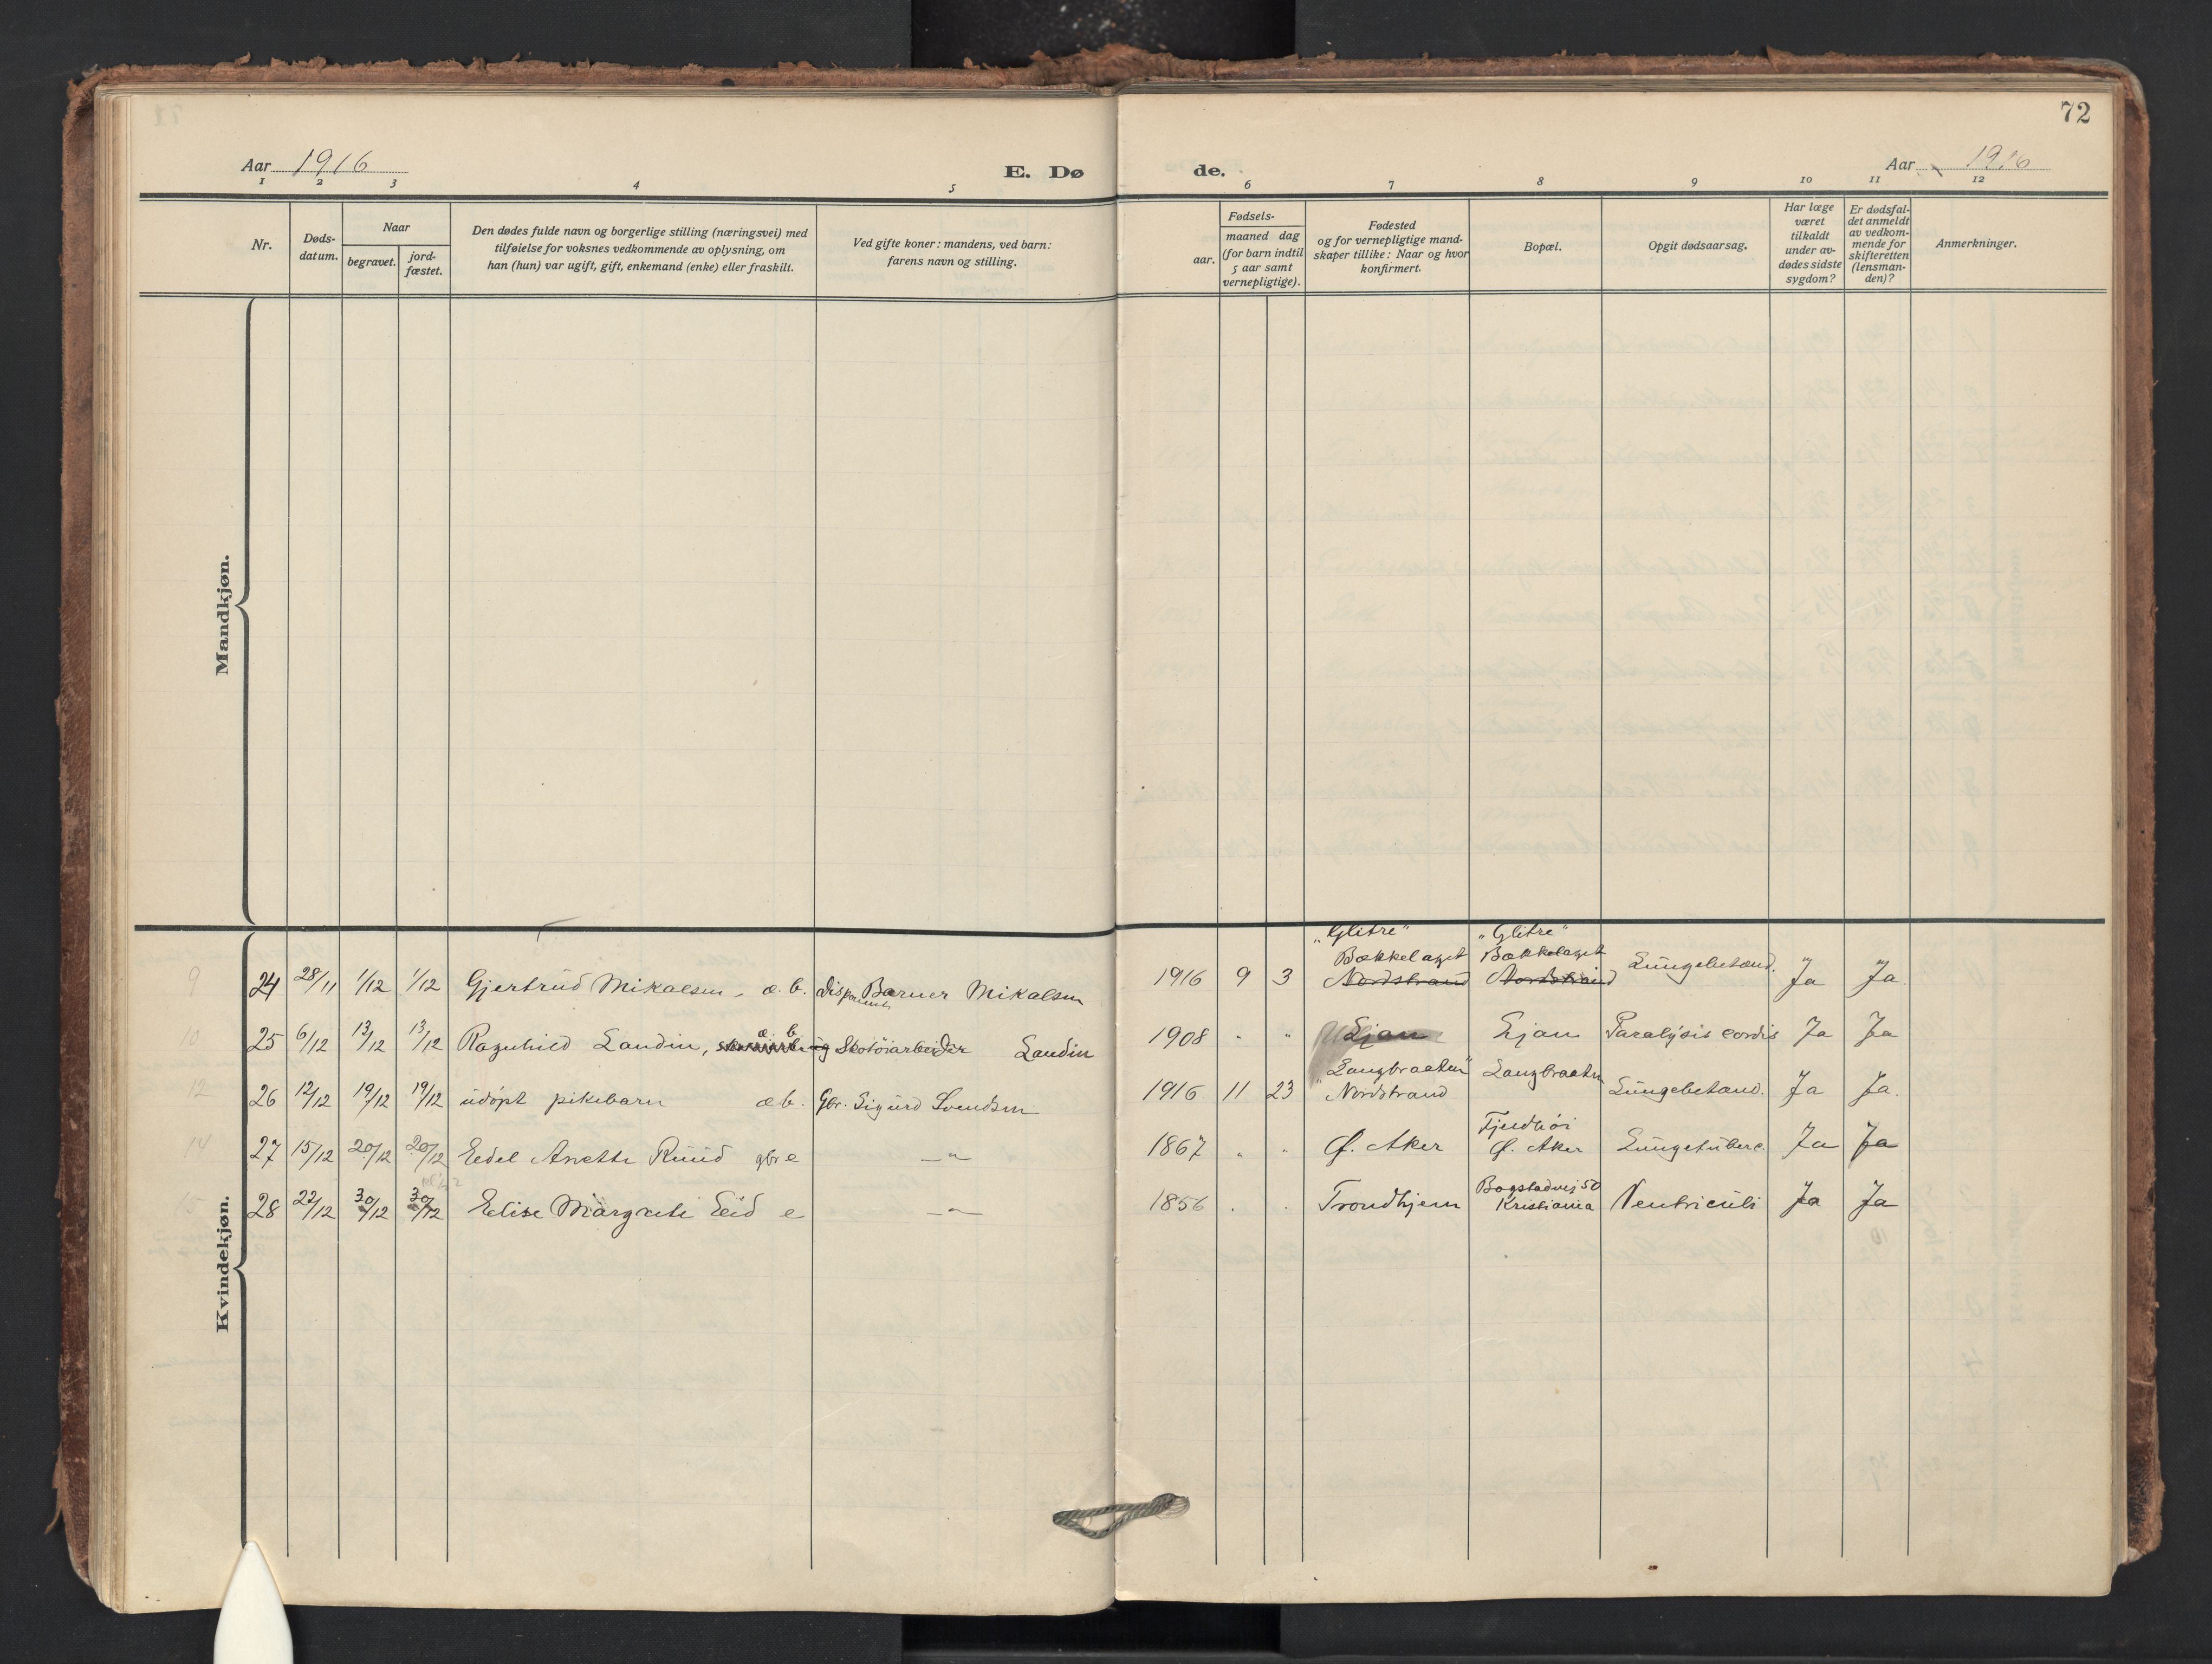 72
Aar 1916
E. Dø
de.
Aar 1916
1 2 3 4 5 6 7 8 9 10 11 12
Nr.
Døds-
datum.
Naar
begravet.
jord-
fæstet.
Den dødes fulde navn og borgerlige stilling (næringsvei) med
tilføielse for voksnes vedkommende av oplysning, om
han (hun) var ugift, gift, enkemand (enke) eller fraskilt.
Ved gifte koner: mandens, ved barn:
farens navn og stilling.
Fødsels-
aar.
maaned dag
(for barn indtil
5 aar samt
vernepligtige).
Fødested
og for vernepligtige mand-
skaper tillike: Naar og hvor
konfirmert.
Bopæl.
Opgit dødsaarsag.
Har læge
været
tilkaldt
under av-
dødes sidste
sygdom?
Er dødsfal-
det anmeldt
av vedkom-
mende for
skifteretten
(lensman-
den)?
Anmerkninger.
Mandkjøn.
Kvindekjøn.
"Glitre" "Glitre"
Bækkelaget Bækkelaget
24 28/11 1/12 1/12 Gjertrud Mikalsen, æ. b. Disponent Barner Mikalsen 1916 9 3 Nordstrand Nordstrand Lungebetænd. Ja Ja
æ b
25 6/12 13/12 13/12 Ragnhild Landin, Skotöiarbeider Landin 1908 " " Ljan Ljan Paralysis cordis Ja Ja
"Langbraaten" Langbraaten
26 12/12 19/12 19/12 udøpt pikebarn æb. Gbr. Sigurd Svendsen 1916 11 23 Nordstrand Lungebetænd. Ja Ja.
Fjeldhöi
27 15/12 20/12 20/12 Edel Anette Ruud gbr e —"— 1867 " " Ø. Aker Ø. Aker Lungetuberc. Ja Ja
Bogstadvej 50
28 22/12 30/12 30/12 Elise Margrete Eid e —"— 1856 " " Trondhjem Kristiania Ventriculi Ja Ja